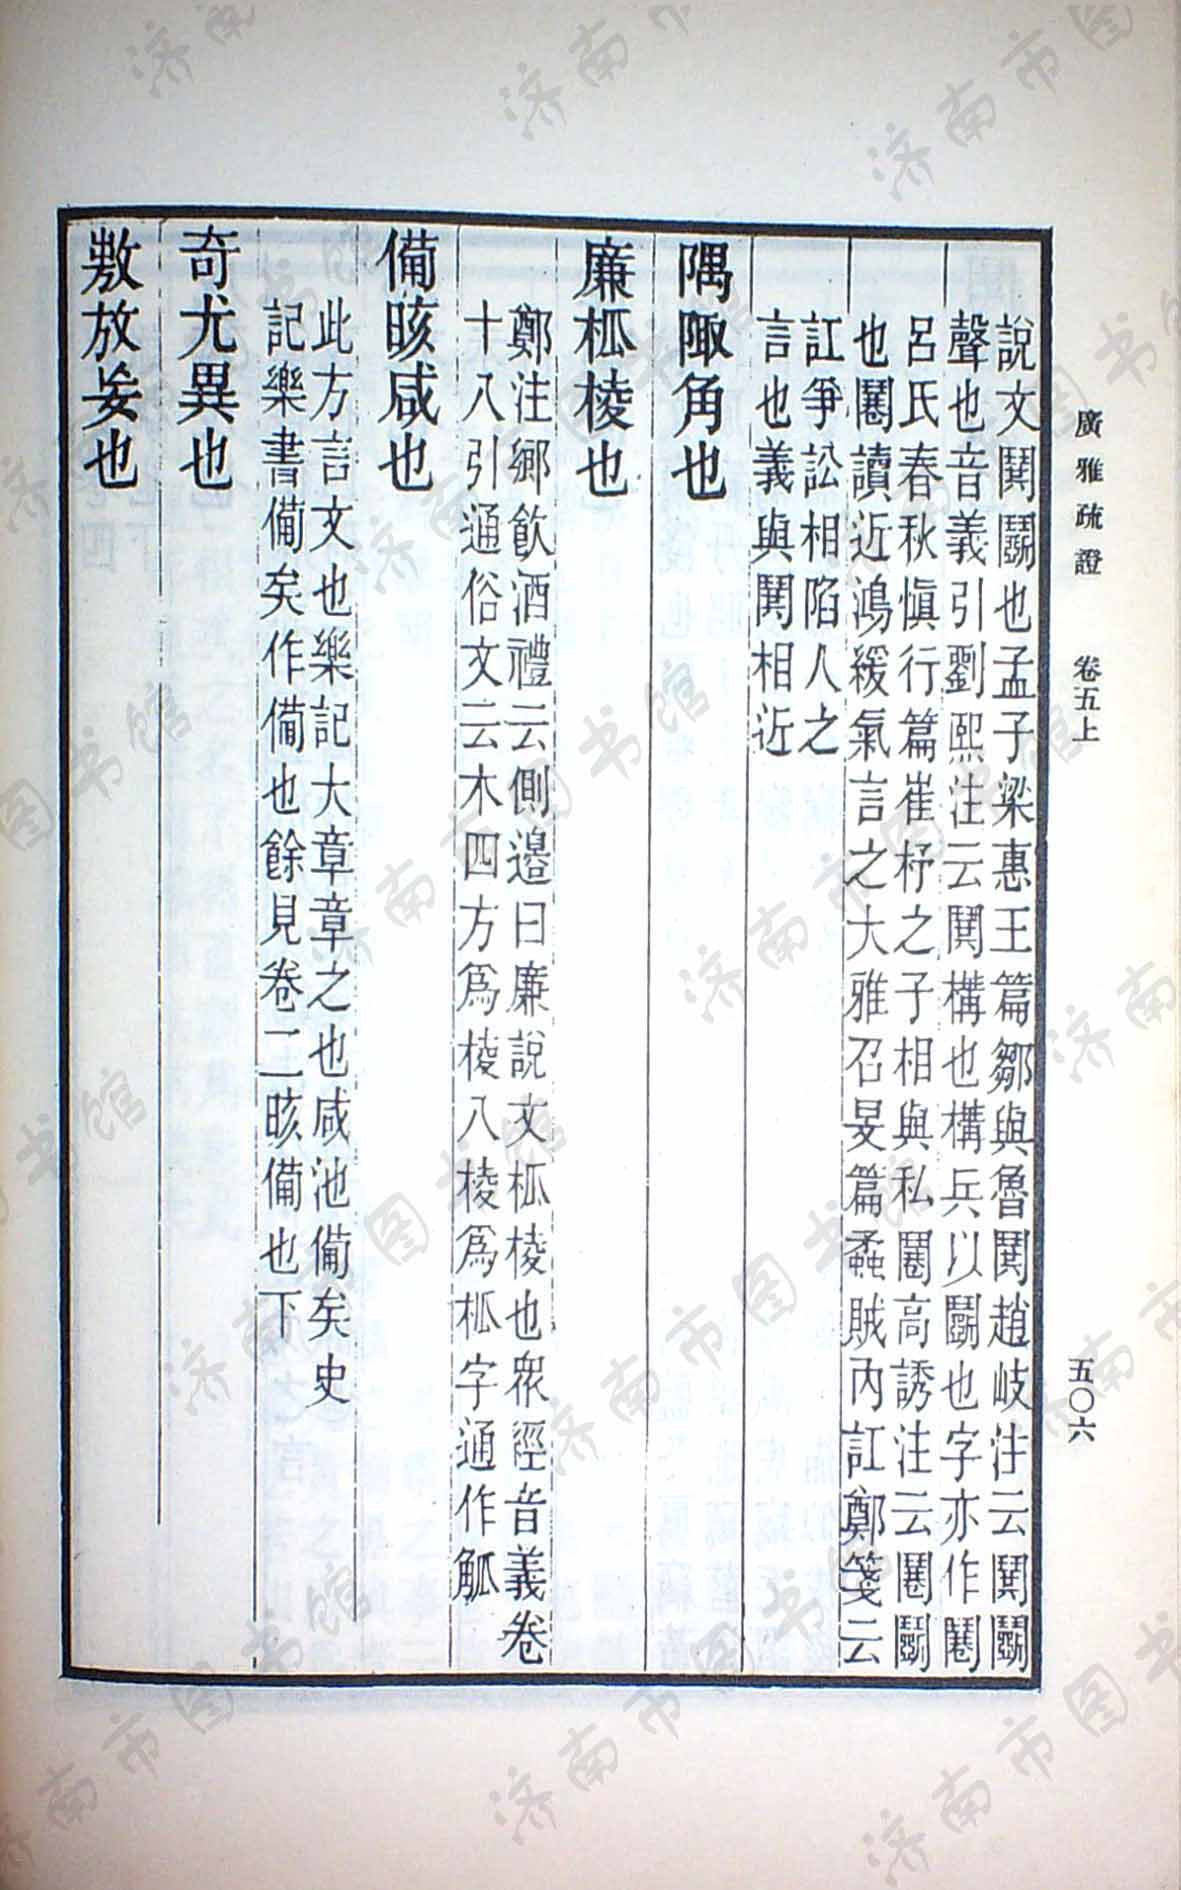 廣雅疏證 卷五上 五〇六
說文鬨鬭也孟子梁惠王篇鄒與魯鬨趙岐注云鬨鬭
聲也音義引劉熙注云鬨構也構兵以鬭也字亦作
呂氏春秋慎行篇崔杼之子相與私高誘注云鬭
也讀近鴻緩氣言之大雅召旻篇蟊賊內訌鄭箋云
訌爭訟相陷人之
言也義與鬨相近
隅陬角也
廉柧棱也
鄭注鄉飲酒禮云側邊曰廉說文柧棱也眾經音義卷
十八引通俗文云木四方爲棱八棱爲柧字通作觚
備晐咸也
此方言文也樂記大章章之也咸池備矣史
記樂書備矣作備也餘見卷二晐備也下
奇尤異也
敖放妄也
济南市图书馆